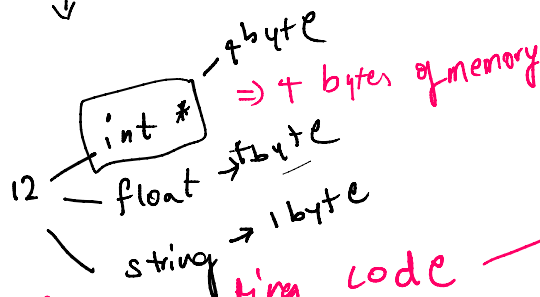 4 byte
⇒ 4 bytes of memory
int *
12
float → 4 byte
string → 1 byte
code